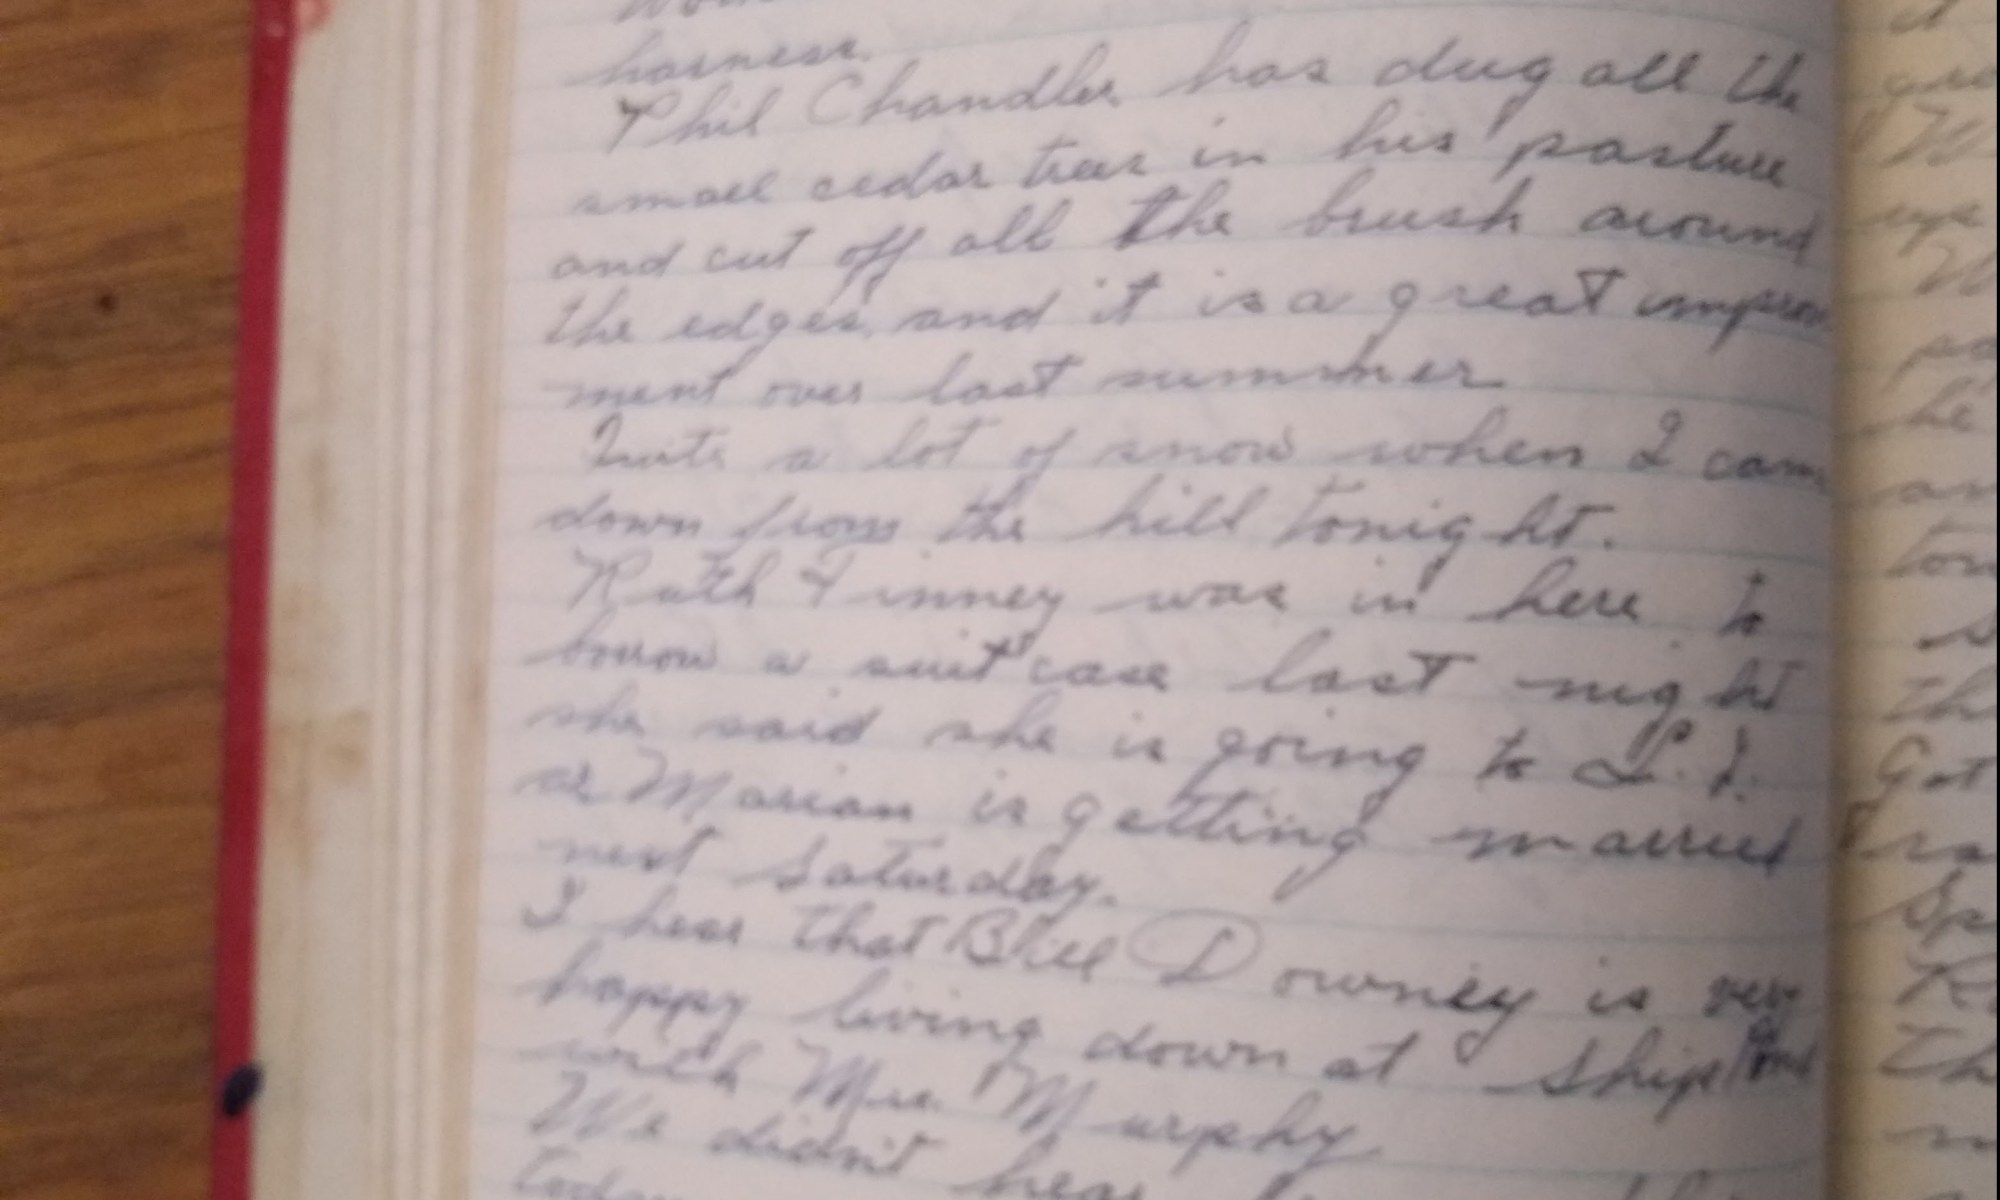 harness.
Phil Chandler has dug all the
small cedar trees in his pasture
and cut off all the brush around
the edges and it is a great improve
ment over last summer
Quite a lot of snow when I came
down from the hill tonight.
Ruth Finney was in here to
borrow a suit case last night
she said she is going to L. I.
as Marian is getting married
next Saturday.
I hear that Bill Downey is very
happy living down at Ship Pond
with Mrs. Murphy
We didn't hear
today